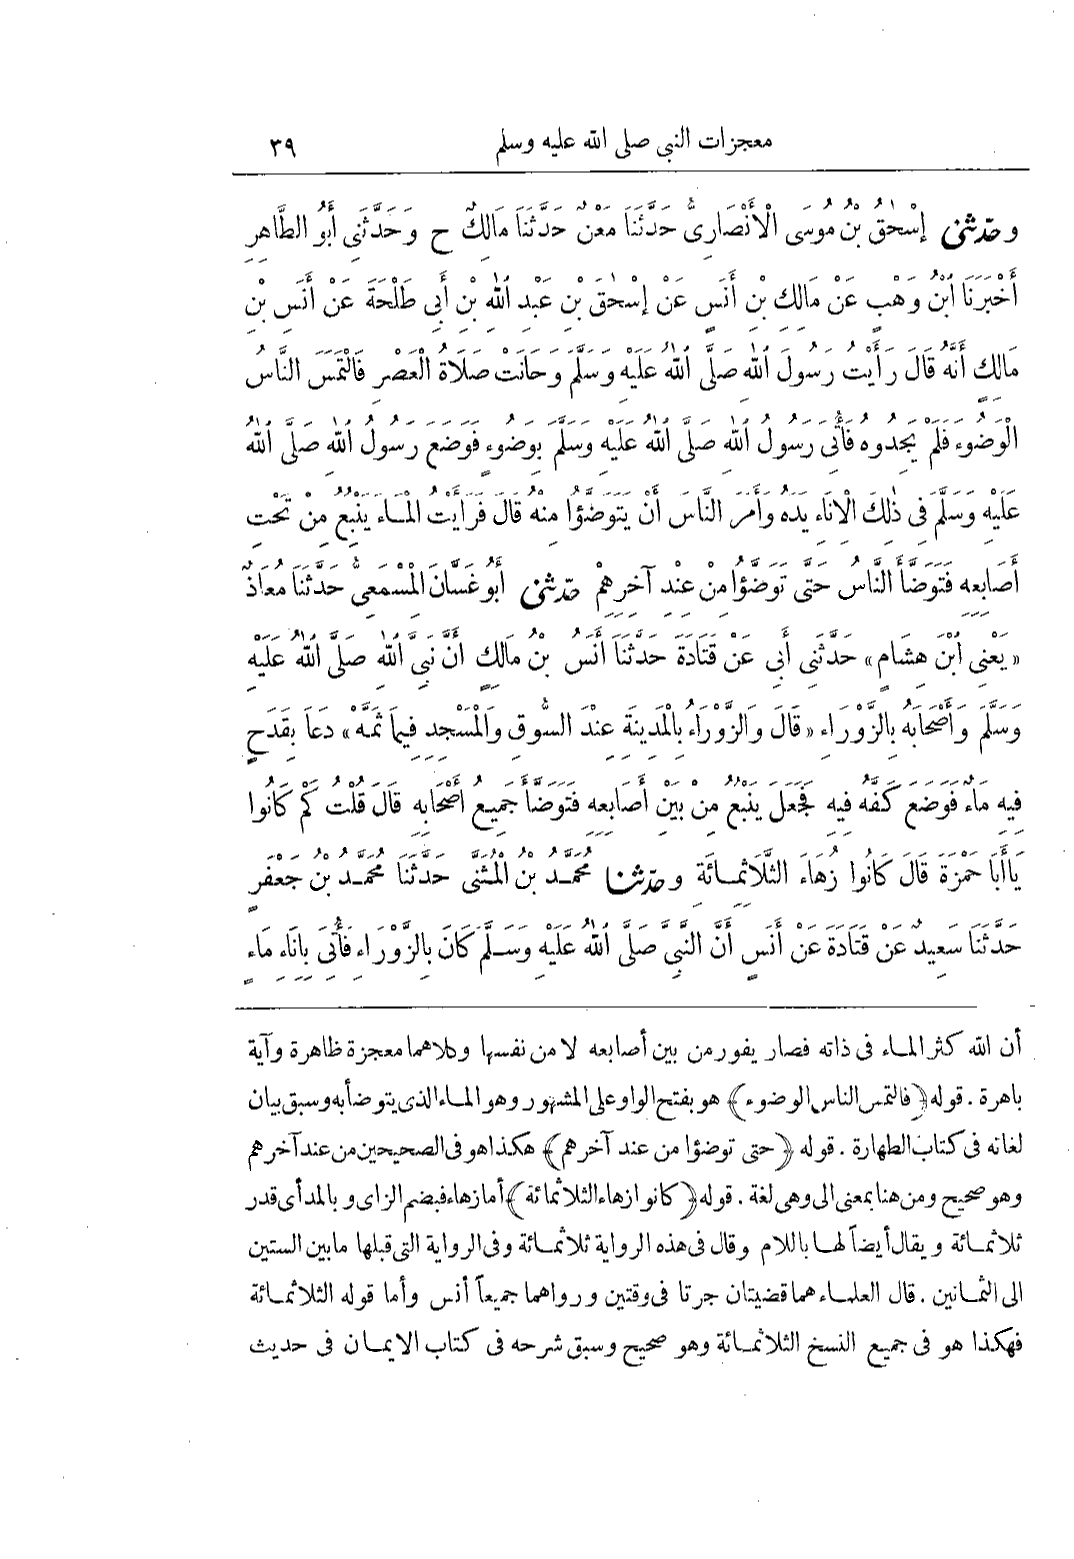 معجزات النبى صلى الله عليه وسلم ٣٩
و حَدَّثَنِى إِسْحٰقُ بْنُ مُوسَى الْأَنْصَارِىُّ حَدَّثَنَا مَعْنٌ حَدَّثَنَا مَالِكٌ ح وَحَدَّثَنِى أَبُو الطَّاهِرِ
أَخْبَرَنَا ابْنُ وَهْبٍ عَنْ مَالِكِ بْنِ أَنَسٍ عَنْ إِسْحٰقَ بْنِ عَبْدِ اللهِ بْنِ أَبِى طَلْحَةَ عَنْ أَنَسِ بْنِ
مَالِكٍ أَنَّهُ قَالَ رَأَيْتُ رَسُولَ اللهِ صَلَّى اللهُ عَلَيْهِ وَسَلَّمَ وَحَانَتْ صَلَاةُ الْعَصْرِ فَالْتَمَسَ النَّاسُ
الْوَضُوءَ فَلَمْ يَجِدُوهُ فَأُتِىَ رَسُولُ اللهِ صَلَّى اللهُ عَلَيْهِ وَسَلَّمَ بِوَضُوءٍ فَوَضَعَ رَسُولُ اللهِ صَلَّى اللهُ
عَلَيْهِ وَسَلَّمَ فِى ذٰلِكَ الْإِنَاءِ يَدَهُ وَأَمَرَ النَّاسَ أَنْ يَتَوَضَّؤُا مِنْهُ قَالَ فَرَأَيْتُ الْمَاءَ يَنْبُعُ مِنْ تَحْتِ
أَصَابِعِهِ فَتَوَضَّأَ النَّاسُ حَتَّى تَوَضَّؤُا مِنْ عِنْدِ آخِرِهِمْ حَدَّثَنِى أَبُو غَسَّانَ الْمِسْمَعِىُّ حَدَّثَنَا مُعَاذٌ
« يَعْنِى ابْنَ هِشَامٍ » حَدَّثَنِى أَبِى عَنْ قَتَادَةَ حَدَّثَنَا أَنَسُ بْنُ مَالِكٍ أَنَّ نَبِىَّ اللهِ صَلَّى اللهُ عَلَيْهِ
وَسَلَّمَ وَأَصْحَابَهُ بِالزَّوْرَاءِ « قَالَ وَالزَّوْرَاءُ بِالْمَدِينَةِ عِنْدَ السُّوقِ وَالْمَسْجِدِ فِيمَا ثَمَّهْ » دَعَا بِقَدَحٍ
فِيهِ مَاءٌ فَوَضَعَ كَفَّهُ فِيهِ فَجَعَلَ يَنْبُعُ مِنْ بَيْنِ أَصَابِعِهِ فَتَوَضَّأَ جَمِيعُ أَصْحَابِهِ قَالَ قُلْتُ كَمْ كَانُوا
يَاأَبَا حَمْزَةَ قَالَ كَانُوا زُهَاءَ الثَّلَاثِمِائَةِ و حَدَّثَنَا مُحَمَّدُ بْنُ الْمُثَنَّى حَدَّثَنَا مُحَمَّدُ بْنُ جَعْفَرٍ
حَدَّثَنَا سَعِيدٌ عَنْ قَتَادَةَ عَنْ أَنَسٍ أَنَّ النَّبِىَّ صَلَّى اللهُ عَلَيْهِ وَسَلَّمَ كَانَ بِالزَّوْرَاءِ فَأُتِىَ بِإِنَاءِ مَاءٍ
أن الله كثر الماء فى ذاته فصار يفور من بين أصابعه لا من نفسها وكلاهما معجزة ظاهرة وآية
باهرة . قوله ﴿فالتمس الناس الوضوء﴾ هو بفتح الواو على المشهور وهو الماء الذى يتوضأ به وسبق بيان
لغاته فى كتاب الطهارة . قوله ﴿حتى توضؤا من عند آخرهم﴾ هكذا هو فى الصحيحين من عند آخرهم
وهو صحيح ومن هنا بمعنى الى وهى لغة . قوله ﴿كانوا زهاء الثلاثمائة﴾ أما زهاء فبضم الزاى و بالمد أى قدر
ثلاثمائة و يقال أيضاً لها باللام وقال فى هذه الرواية ثلاثمائة وفى الرواية التى قبلها مابين الستين
الى الثمانين . قال العلماء هما قضيتان جرتا فى وقتين و رواهما جميعاً أنس وأما قوله الثلاثمائة
فهكذا هو فى جميع النسخ الثلاثمائة وهو صحيح وسبق شرحه فى كتاب الايمان فى حديث